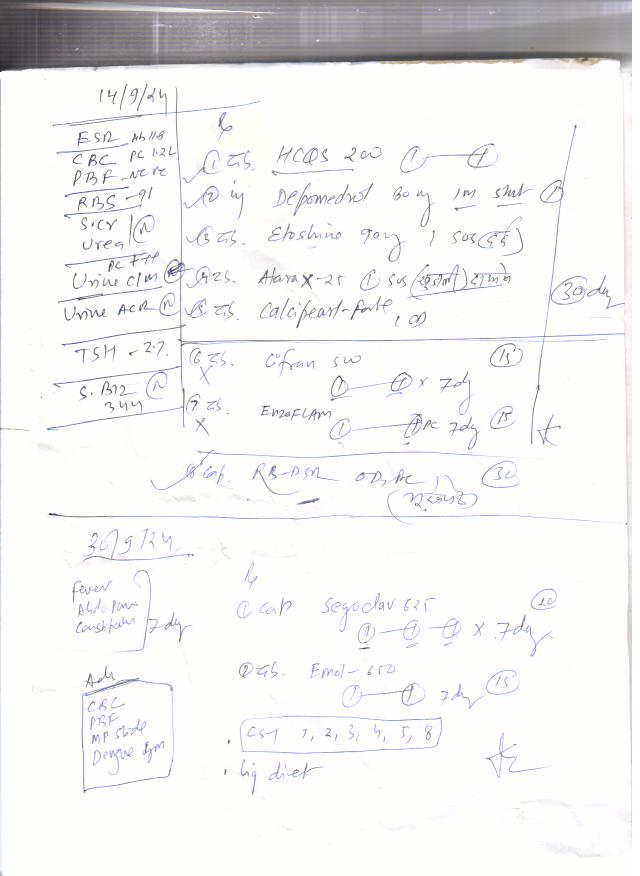 14/9/24
ESR Hb 11.8
CBC PC 1.2L
PBF - NC NC
RBS - 91
S.Cr
Urea (N)
Urine c/m
Urine ACR (N)
TSH - 2.7
S. B12 (N)
344
Rx
① टैब. HCQS 200 ① — ①
② inj Depomedrol 80 mg IM stat ①
③ टैब. Etoshine 90mg 1 SOS (दर्द)
④ टैब. Atarax-25 ① SOS (खुजली)
⑤ टैब. Calcipeart-forte 1 OD
30 day
⑥ टैब. Cifran 500 (15)
X ① — ① x 7 day
⑦ टैब. ENZOFLAM
X ① — ① PC 7 day (15)
⑧ Cap. RB-DSR OD AC (30)
30/9/24
Fever
Abdo. Pain
Constipation
7 day
Rx
① Cap Segoclav 625 (20)
① — ① — ① x 7 day
② टैब. Emol-650
① — ① 7 day (15)
Adv
CBC
PBF
MP Slide
Dengue
. CST 1, 2, 3, 4, 5, 8
. Liq diet